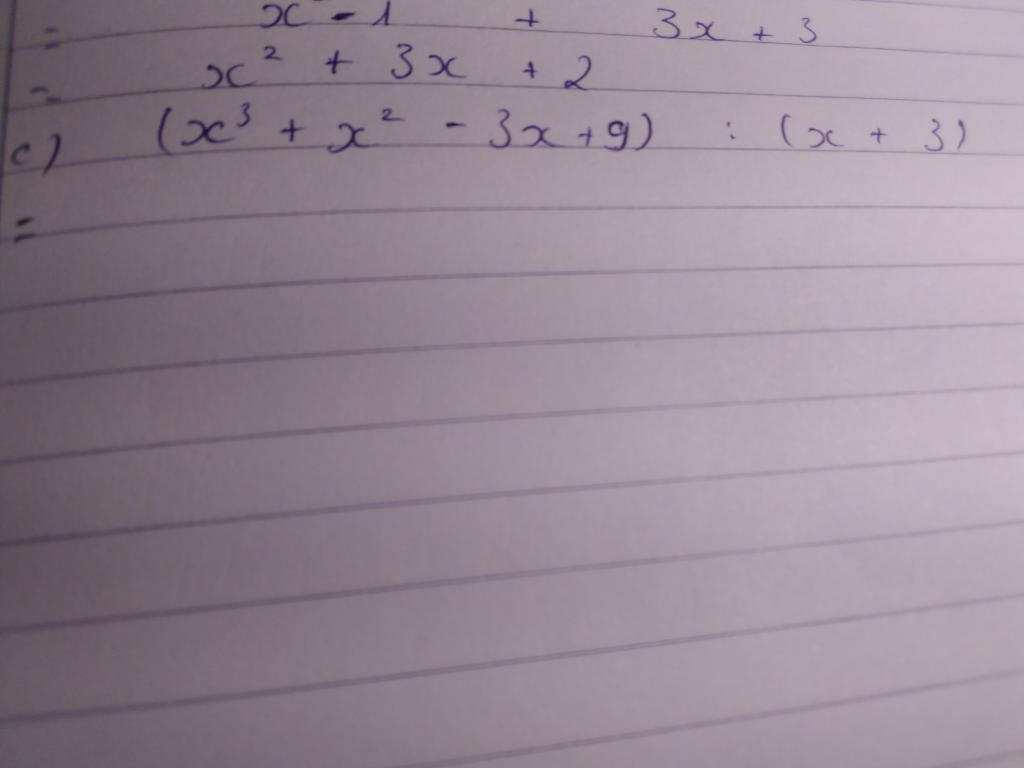 = x² - 1 + 3x + 3
= x² + 3x + 2
c) (x³ + x² - 3x + 9) : (x + 3)
=